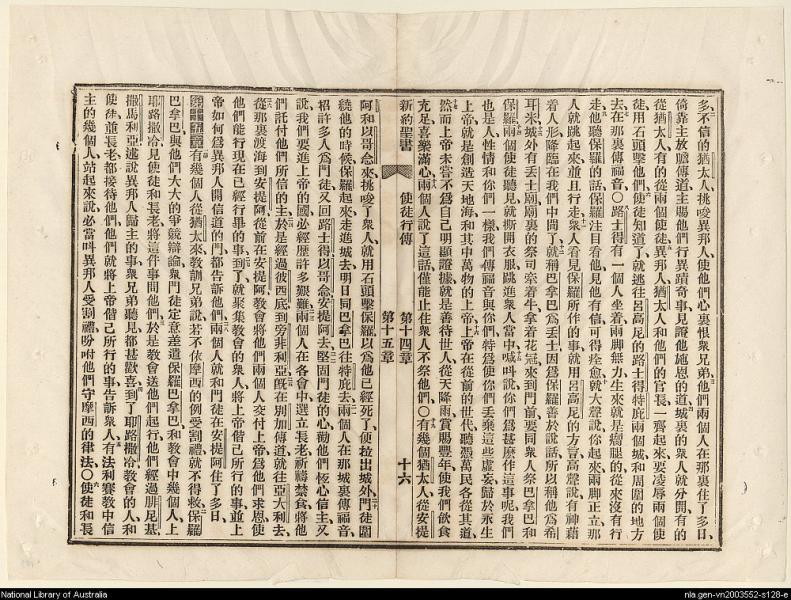 多不信的猶太人挑唆異邦人使他們心裏恨衆兄弟他們兩個人在那裏住了多日、
倚靠主放膽傳道主賜他們行異蹟奇事見證他施恩的道城裏的衆人就分開有的
從猶太人有的從兩個使徒異邦人猶太人和他們的官長一齊起來要凌辱兩個使
徒用石頭擊他們使徒知道了就逃往呂高尼的路士得特庇兩個城和周圍的地方
去在那裏傳福音〇路士得有一個人坐着兩脚無力生來就是瘸腿的從來沒有行
走他聽保羅的話保羅注目看他見他有信可得痊愈就大聲說你起來兩脚正立那
人就跳起來並且行走衆人看見保羅所作的事就用呂高尼的方言高聲說有神藉
着人形降臨在我們中間了就稱巴拿巴爲丟士因爲保羅善於說話所以稱他爲希
耳米城外有丟士廟廟裏的祭司牽着牛拿着花冠來到門前要同衆人祭巴拿巴和
保羅兩個使徒聽見就撕開衣服跳進衆人當中喊呌說你們爲甚麽作這事呢我們
也是人性情和你們一樣我們傳福音與你們特爲使你們丟棄這些虛妄歸於永生
上帝就是創造天地海和其中萬物的上帝上帝在從前的世代聽憑萬民各從其道
然而上帝未嘗不爲自己明顯證據就是善待世人從天降雨賞賜豐年使我們飲食
充足喜樂滿心兩個人說了這話僅能止住衆人不祭他們〇有幾個猶太人從安提
新約聖書 使徒行傳 第十四章 第十五章 十六
阿和以哥念來挑唆了衆人就用石頭擊保羅以爲他已經死了便拉出城外門徒圍
繞他的時候保羅起來走進城去明日同巴拿巴往特庇去兩個人在那城裏傳福音
招許多人爲門徒又回路士得以哥念安提阿去堅固門徒的心勸他們恆心信主又
說我們要進上帝的國必經歷許多艱難兩個人在各會中選立長老祈禱禁食將他
們託付他們所信的主於是經過彼西底到旁非利亞旣在別加傳道就往亞大利去、
從那裏渡海到安提阿從前在安提阿教會將他們兩個人交付上帝爲他們求恩使
他們能行現在已經行畢的事到了就聚集教會的衆人將上帝偕己所行的事並上
帝如何爲異邦人開信道的門都告訴他們兩個人就和門徒在安提阿住了多日
有幾個人從猶太來教訓兄弟說若不依摩西的例受割禮就不得救保羅
巴拿巴與他們大大的爭競辯論衆門徒定意差遣保羅巴拿巴和教會中幾個人上
耶路撒冷見使徒和長老將這件事問他們於是教會送他們起行他們經過腓尼基、
撒馬利亞述說異邦人歸主的事衆兄弟聽見都甚歡喜到了耶路撒冷教會的人和
使徒並長老都接待他們他們就將上帝偕己所行的事告訴衆人有法利賽教中信
主的幾個人站起來說必當呌異邦人受割禮吩咐他們守摩西的律法〇使徒和長
National Library of Australia
nla.gen-vn2003552-s128-e